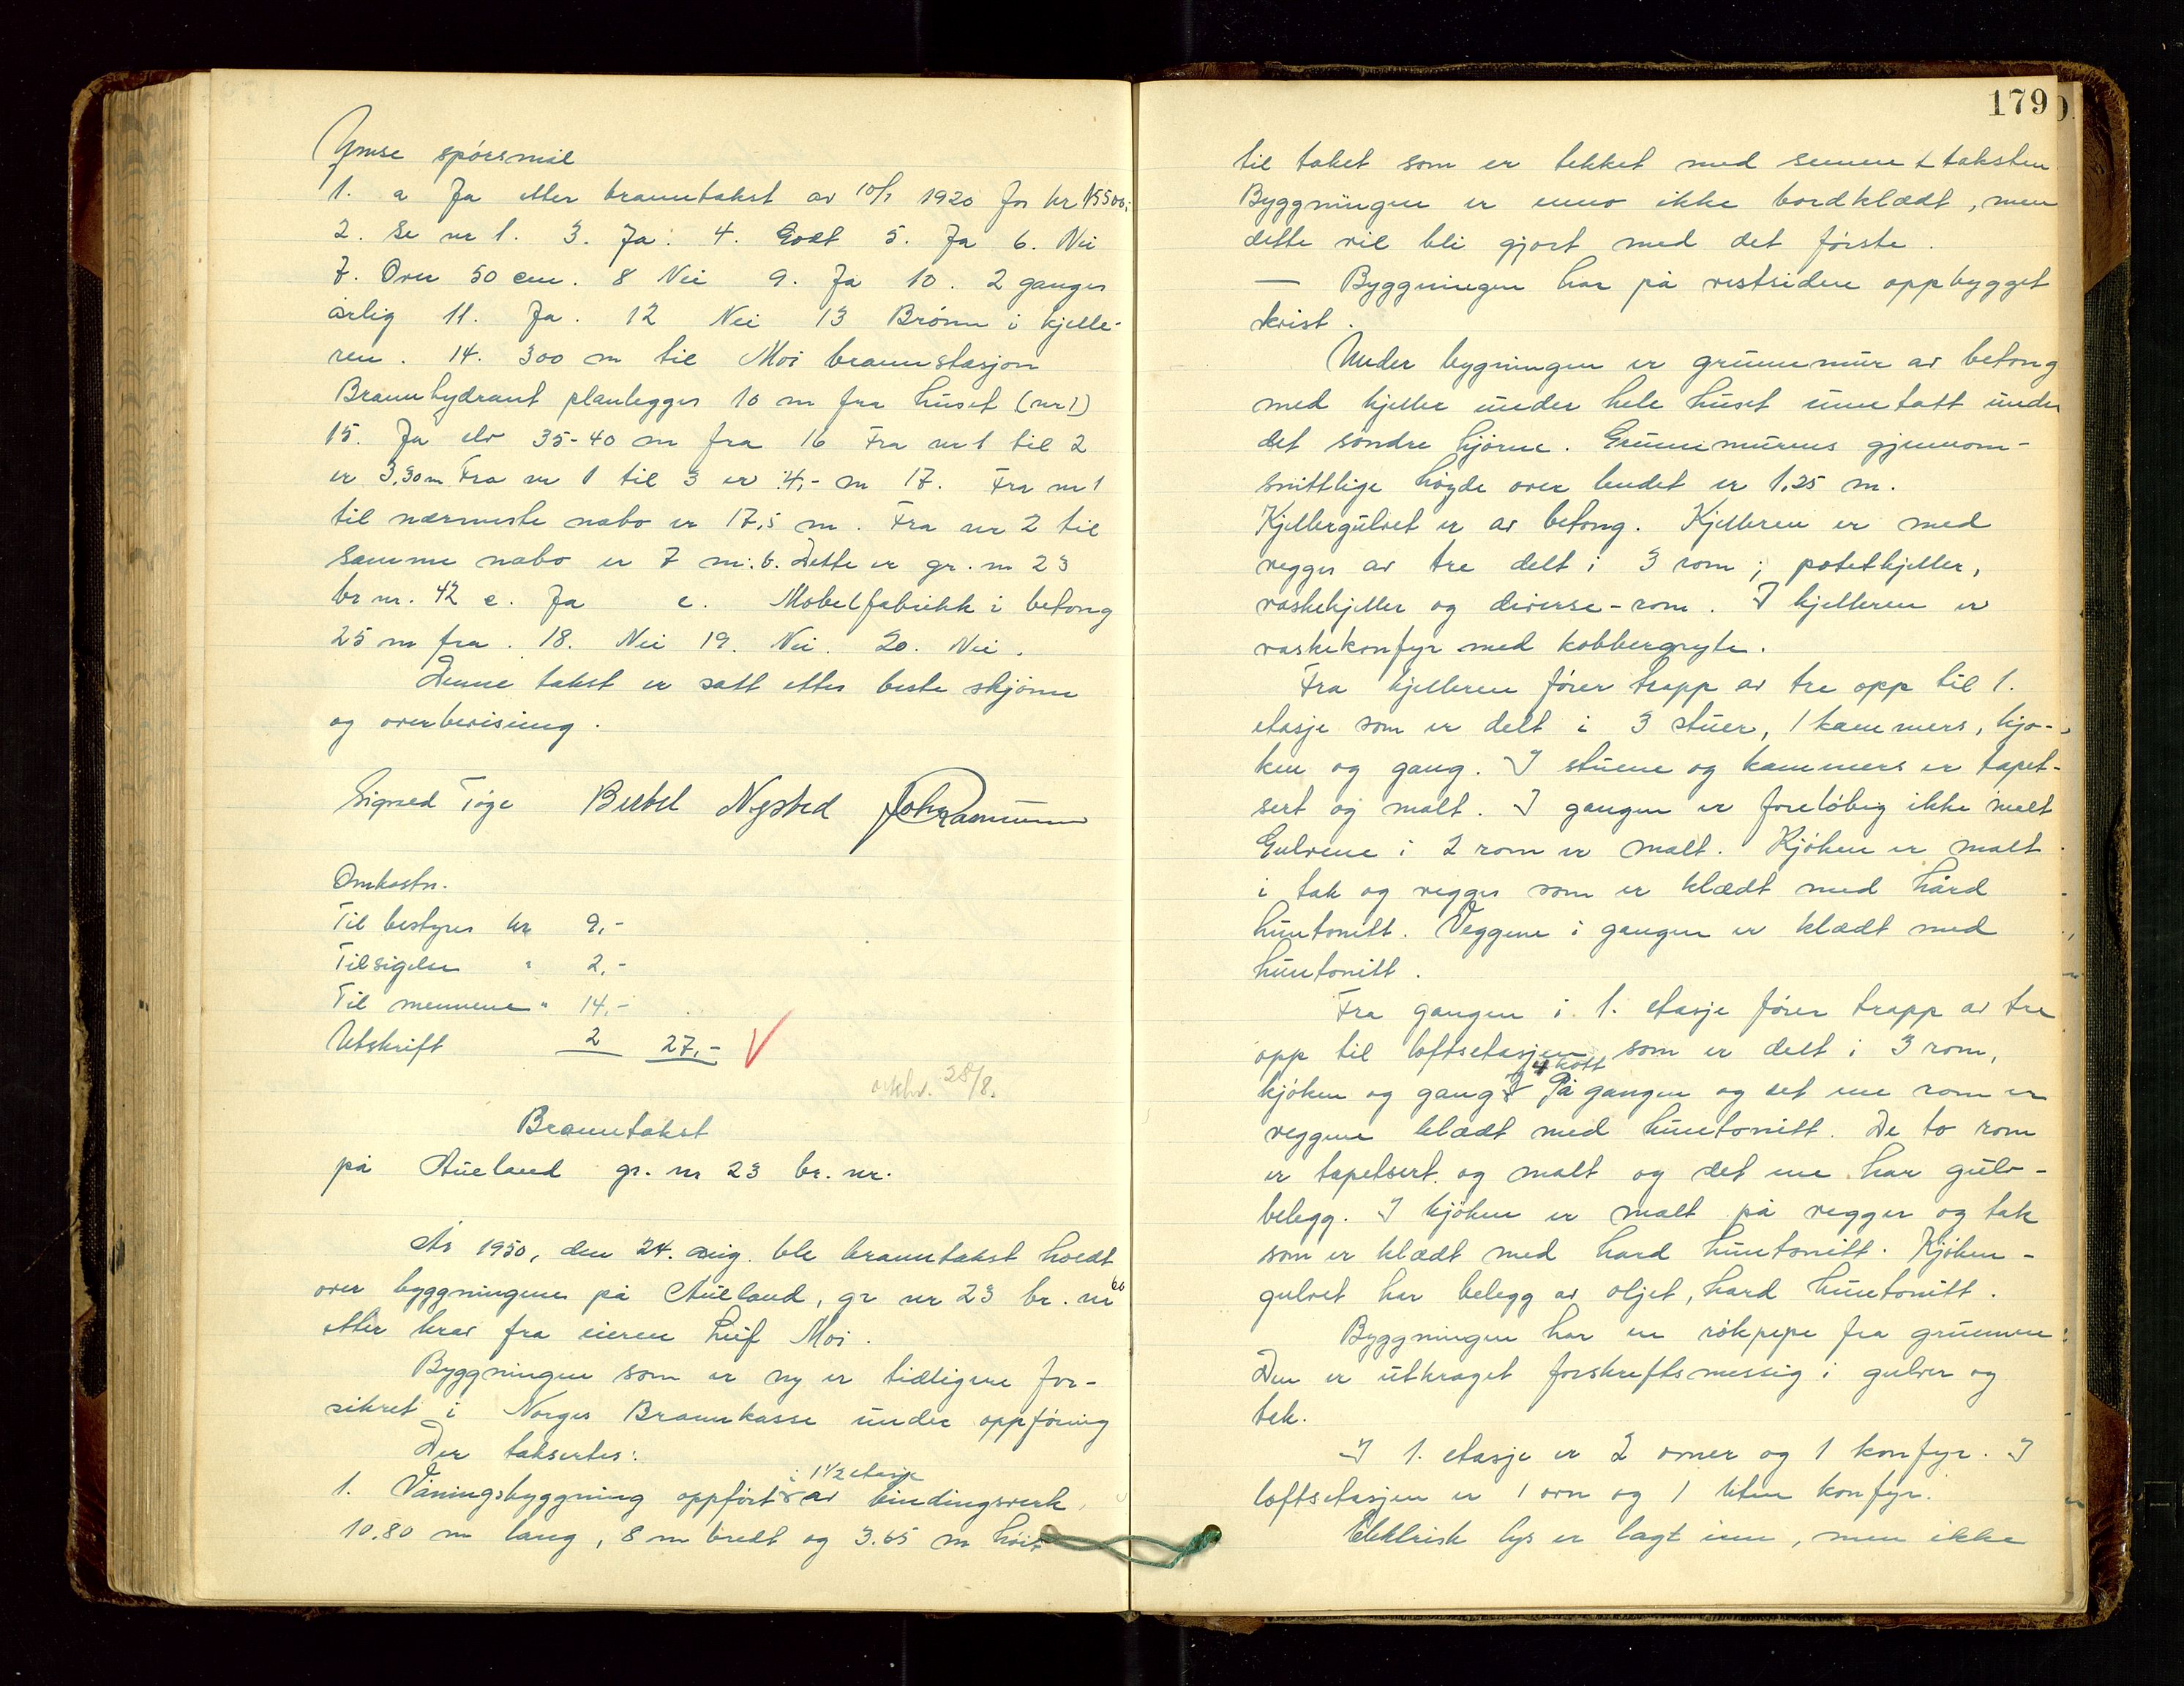 Ymse spørsmål
1. a Ja etter branntakst av 10/7 1920 for kr 15500,-
2. Se nr 1. 3. Ja. 4. Godt 5. Ja 6. Nei
7. Over 50 cm. 8 Nei 9. Ja 10. 2 ganger
årlig 11. Ja. 12 Nei 13 Brønn i kjelle-
ren. 14. 300 m til Moi brannstasjon
Brannhydrant planlegges 10 m fra huset (nr 1)
15. Ja elv 35-40 m fra 16 Fra nr 1 til 2
er 3,30 m Fra nr 1 til 3 er 4,- m 17. Fra nr 1
til nærmeste nabo er 17,5 m. Fra nr 2 til
samme nabo er 7 m. b. Dette er gr. nr 23
br nr. 42 c. Ja e. Møbelfabrikk i betong
25 m fra. 18. Nei 19. Nei. 20. Nei.
Denne takst er satt etter beste skjønn
og overbevisning.
Sigved Tøge Bertel Nysted John Rasmussen
Omkostn.
Til bestyrer kr 9,-
Tilsigelse " 2,-
Til mennene " 14,-
Utskrift 2 27,- V
utskr. 28/8.
Branntakst
på Aueland gr. nr 23 br. nr.
År 1950, den 24. aug. ble branntakst holdt
over byggningene på Aueland, gr nr 23 br. nr
etter krav fra eieren Leif Moi.
Byggningen som er ny er tidligere for-
sikret i Norges Brannkasse under oppføring
Der taksertes:
i 1 1/2 etasje
1. Våningsbyggning oppført av bindingsverk,
10.80 m lang, 8 m bredt og 3.65 m høit
179
til taket som er tekket med sement taksten.
Byggningen er enno ikke bordklædt, men
dette vil bli gjort med det første.
— Byggningen har på vestsiden oppbygget
kvist.
Under bygningen er grunnmur av betong
med kjeller under hele huset unntatt under
det søndre hjørne. Grunnmurens gjennom-
snittlige høyde over lendet er 1,25 m.
Kjellergulvet er av betong. Kjelleren er med
vegger av tre delt i 3 rom; potetkjeller,
vaskekjeller og diverse-rom. I kjelleren er
vaskekomfyr med kobbergryte.
Fra kjelleren fører trapp av tre opp til 1.
etasje som er delt i 3 stuer, 1 kammers, kjø-
ken og gang. I stuene og kammers er tapet-
sert og malt. I gangen er foreløbig ikke malt
Gulvene i 2 rom er malt. Kjøken er malt
i tak og vegger som er klædt med hård
huntonitt. Veggene i gangen er klædt med
huntonitt.
Fra gangen i 1. etasje fører trapp av tre
opp til loftsetasjen som er delt i 3 rom,
4 kott
kjøken og gang. På gangen og det ene rom er
veggene klædt med huntonitt. De to rom
er tapetsert og malt og det ene har gulv-
belegg. I kjøken er malt på vegger og tak
som er klædt med hard huntonitt. Kjøken-
gulvet har belegg av oljet, hard huntonitt.
Byggningen har en røkpipe fra grunnen:
Den er utkraget forskriftsmessig i gulver og
tak.
I 1. etasje er 2 ovner og 1 komfyr. I
loftsetasjen er 1 ovn og 1 liten komfyr.
Elektrisk lys er lagt inn, men ikke